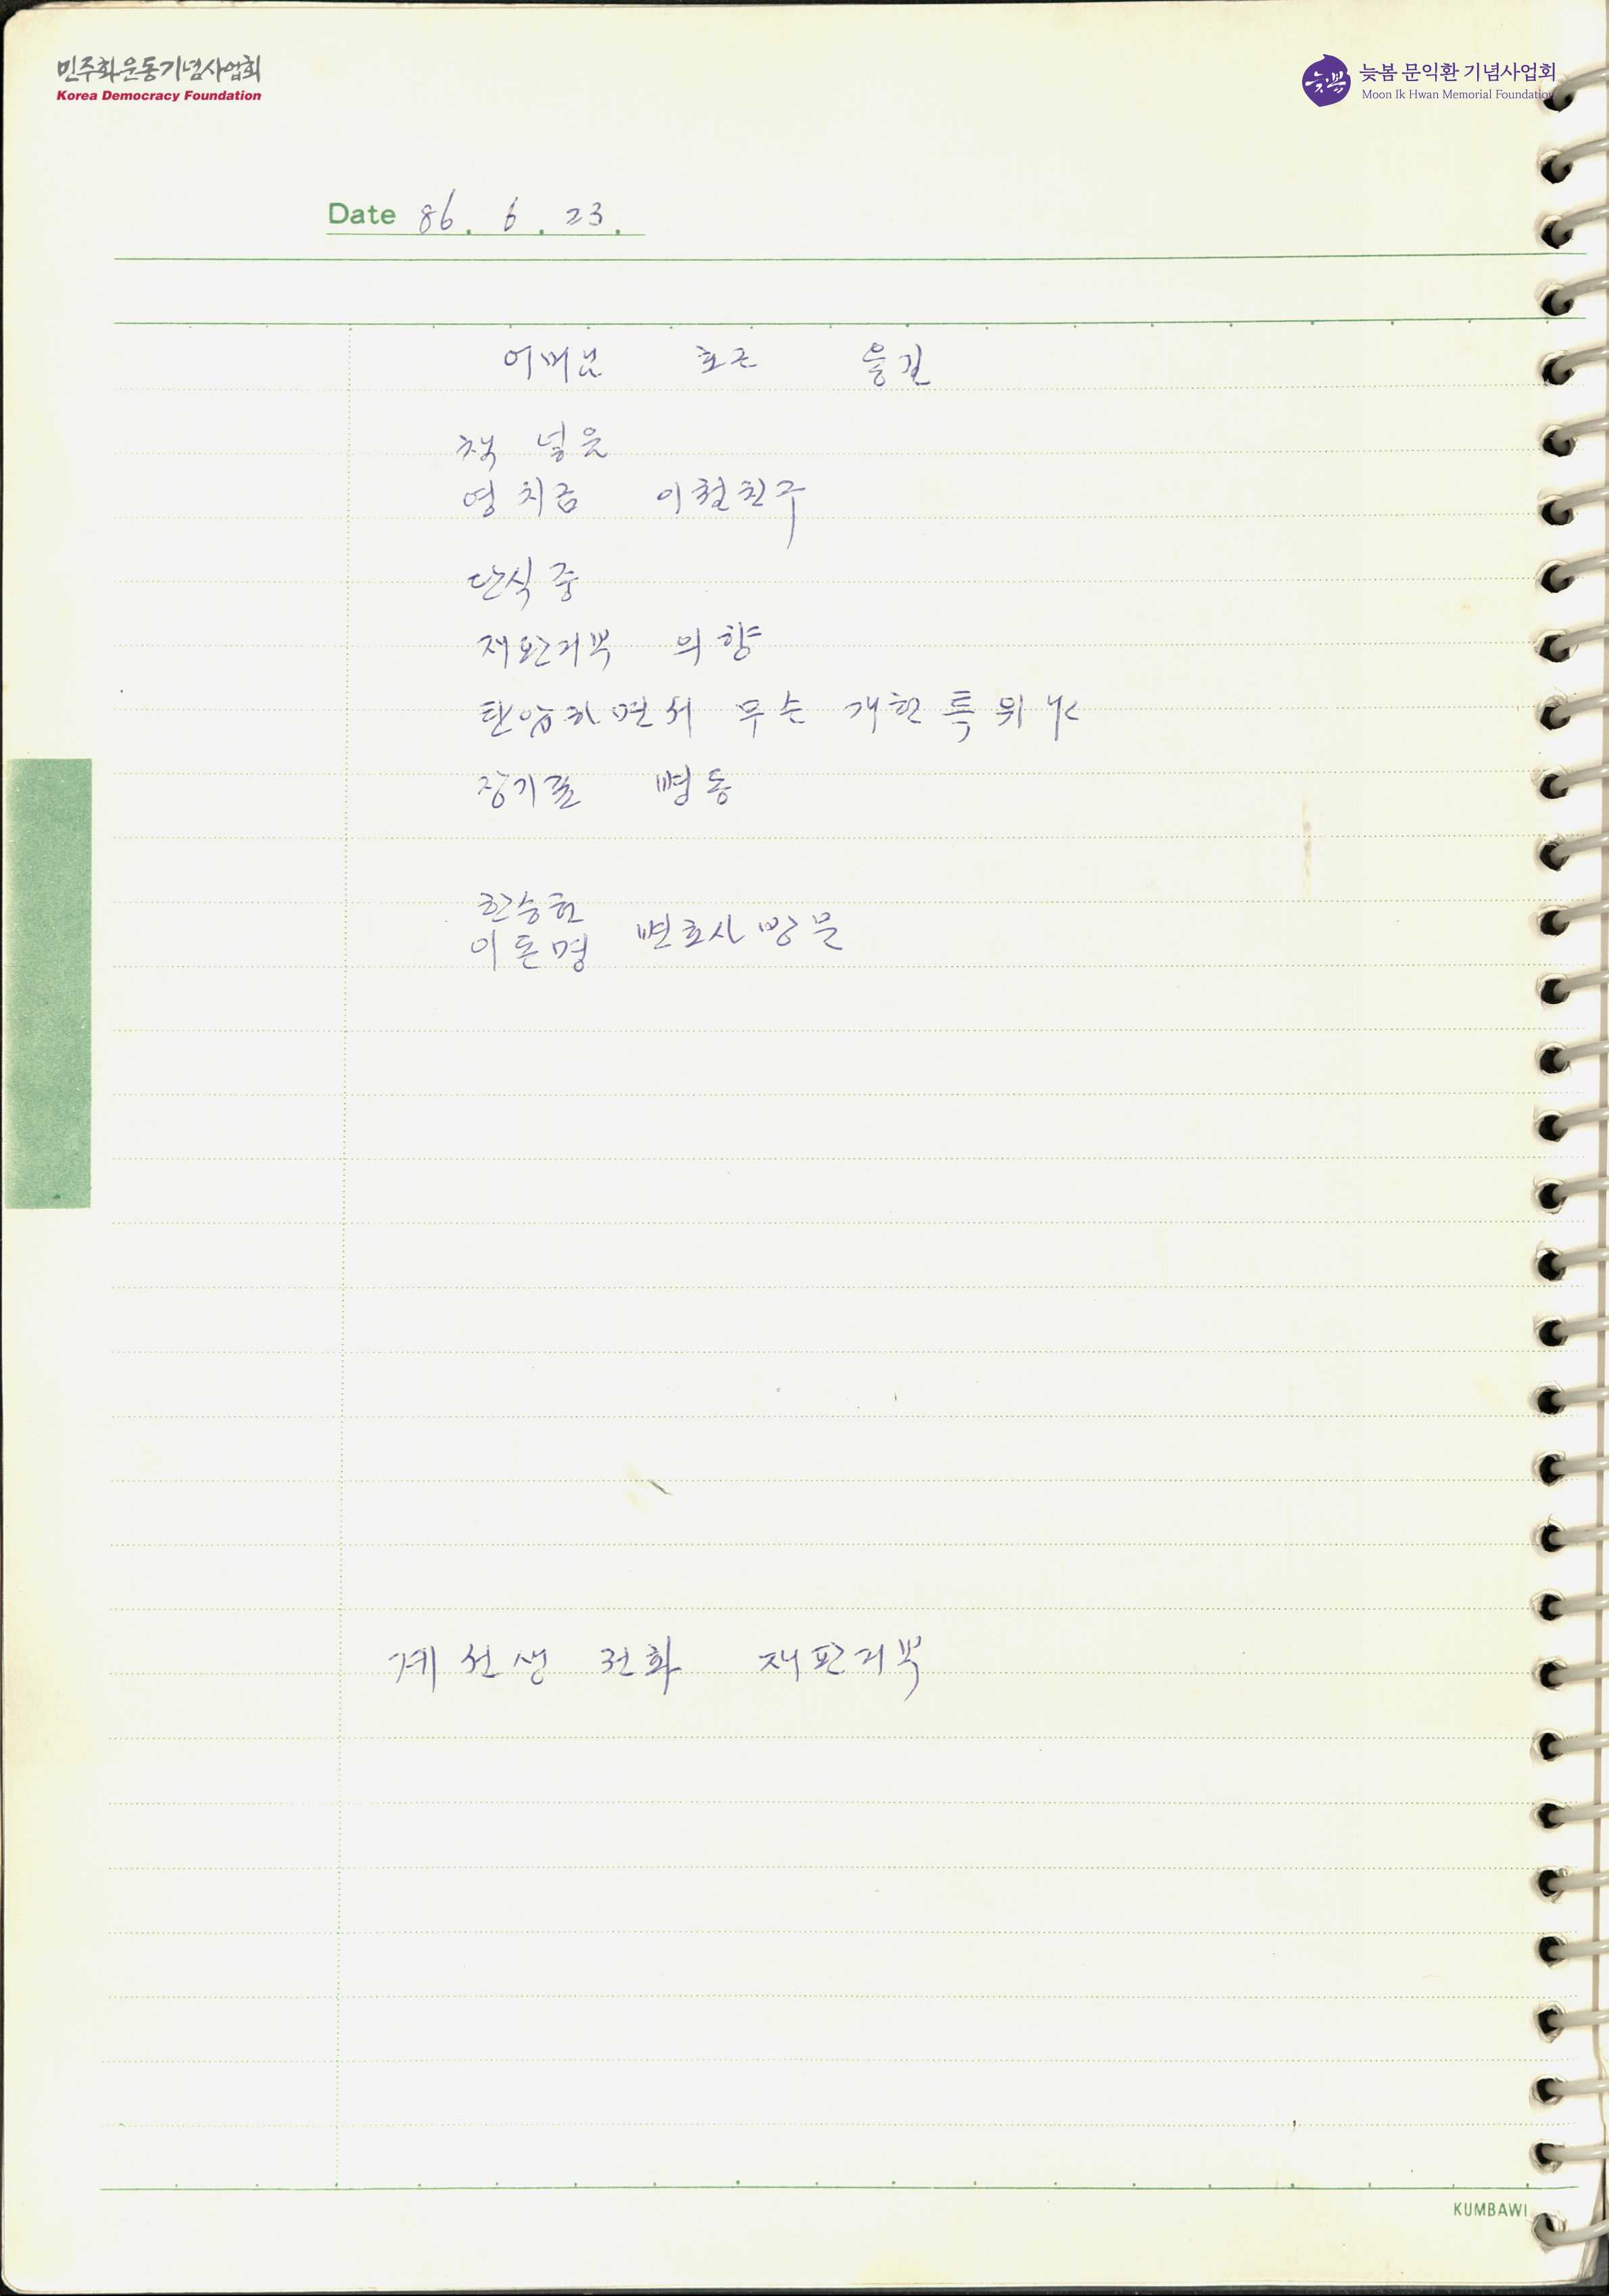 민주화운동기념사업회
Korea Democracy Foundation
늦봄
늦봄 문익환 기념사업회
Moon Ik Hwan Memorial Foundation
Date 86. 6. 23.
어머님 호근 용길
책 넣은
영치금 이철친구
단식 중
재판거부 의향
탄압하면서 무슨 개헌특위냐
장기표 병동
한승헌
이돈명 변호사 방문
계선생 전화 재판거부
KUMBAWI